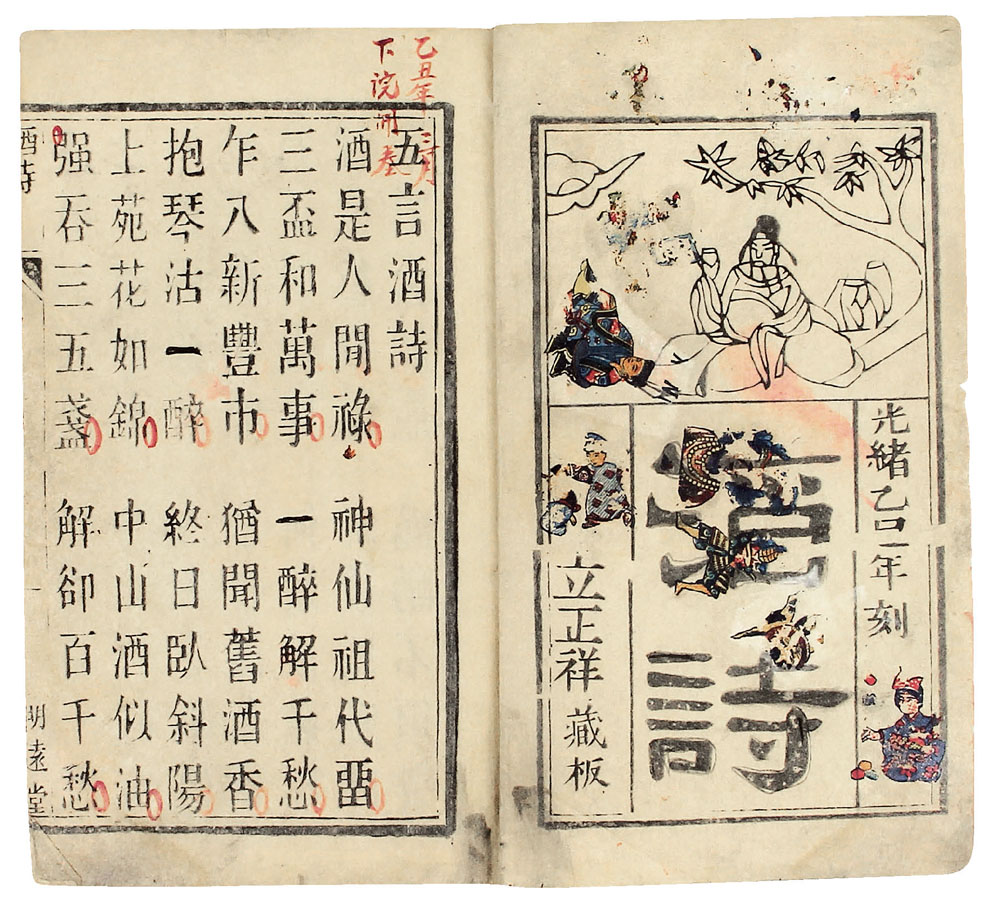 光緒乙巳年刻
酒詩
立正祥藏板
乙丑年三月
下浣開卷
五言酒詩
酒是人閒祿 神仙祖代畱
三盃和萬事 一醉解千愁
乍入新豐市 猶聞舊酒香
抱琴沽一醉 終日臥斜陽
上苑花如錦 中山酒似油
强吞三五盞 解卻百千愁
酒詩 一 明遠堂